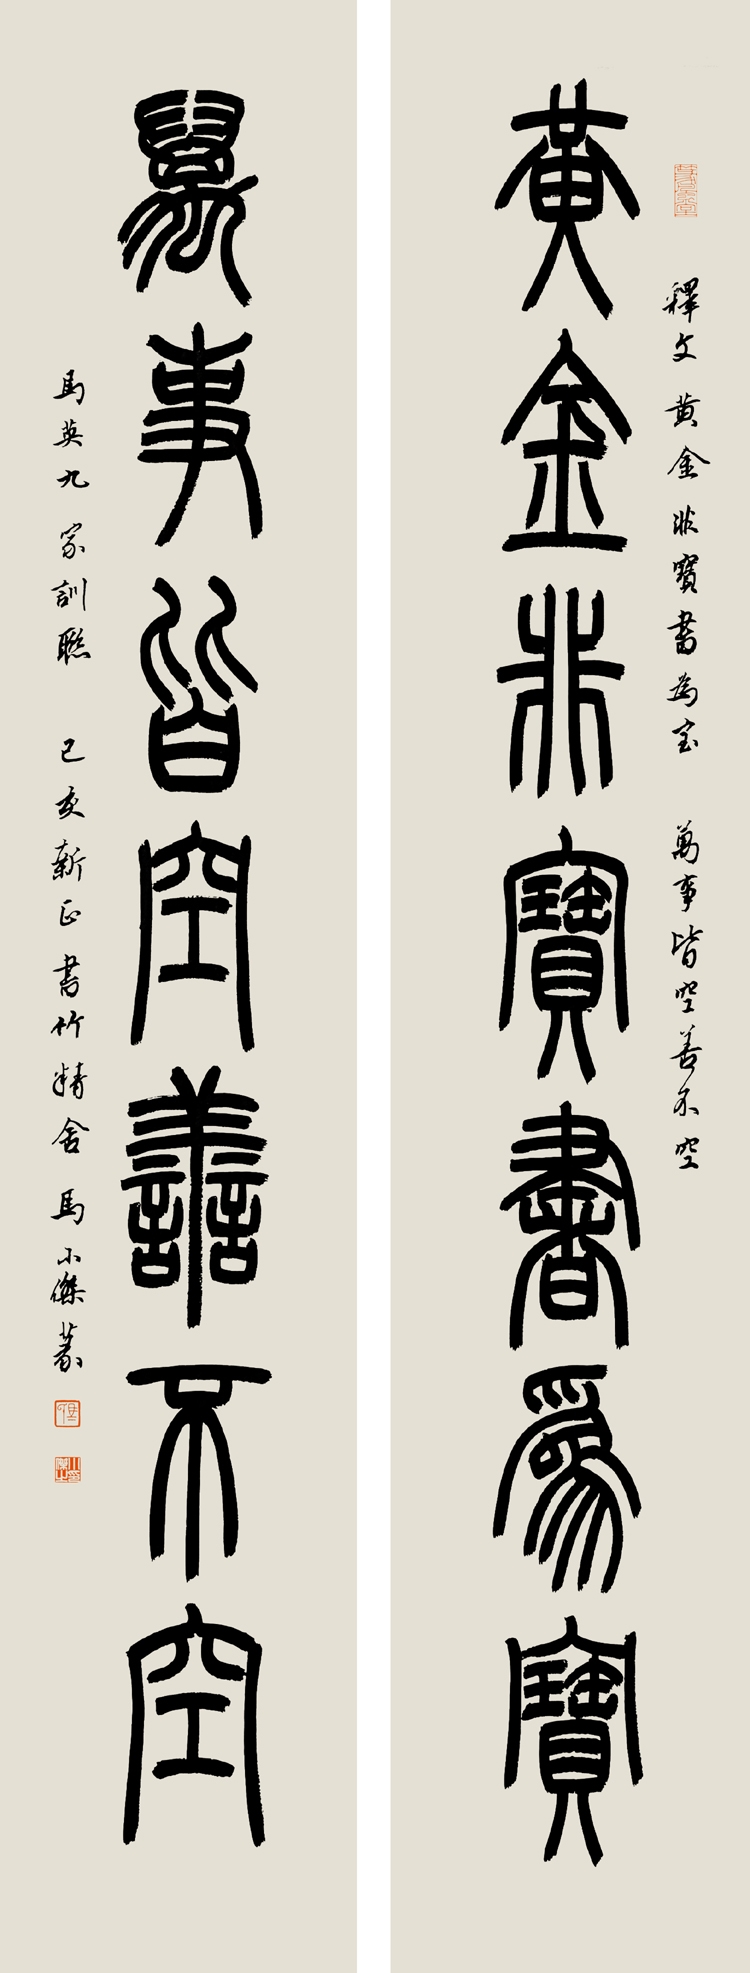 黃金非寶書為寶
釋文 黃金非寶書為宝 萬事皆空善不空
萬事皆空善不空
馬英九家訓聯 己亥新正書竹精舍 馬小傑篆